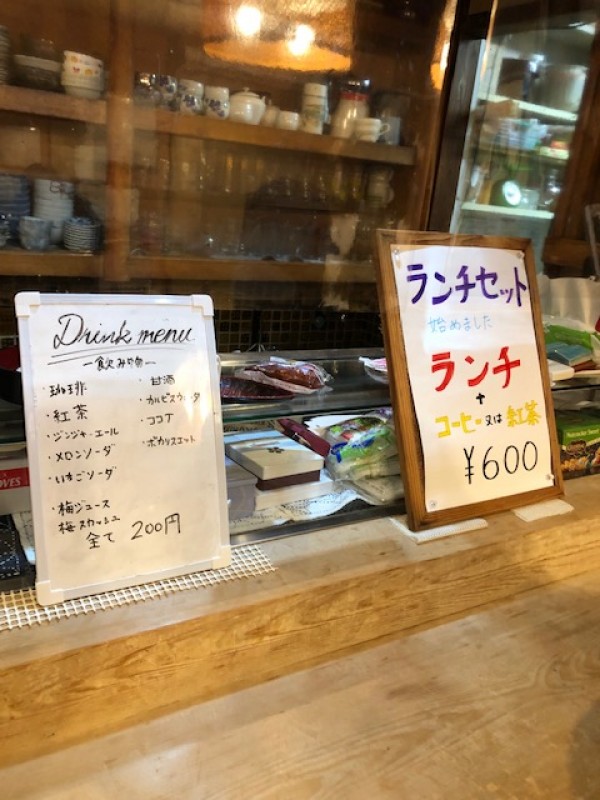 Drink menu
ー飲み物ー
・珈琲
・紅茶
・ジンジャーエール
・メロンソーダ
・いちごソーダ
・梅ジュース
梅スカッシュ
・甘酒
・カルピスウォータ
・ココア
・ポカリスエット
全て 200円
ランチセット
始めました
ランチ
+
コーヒー又は紅茶
¥600